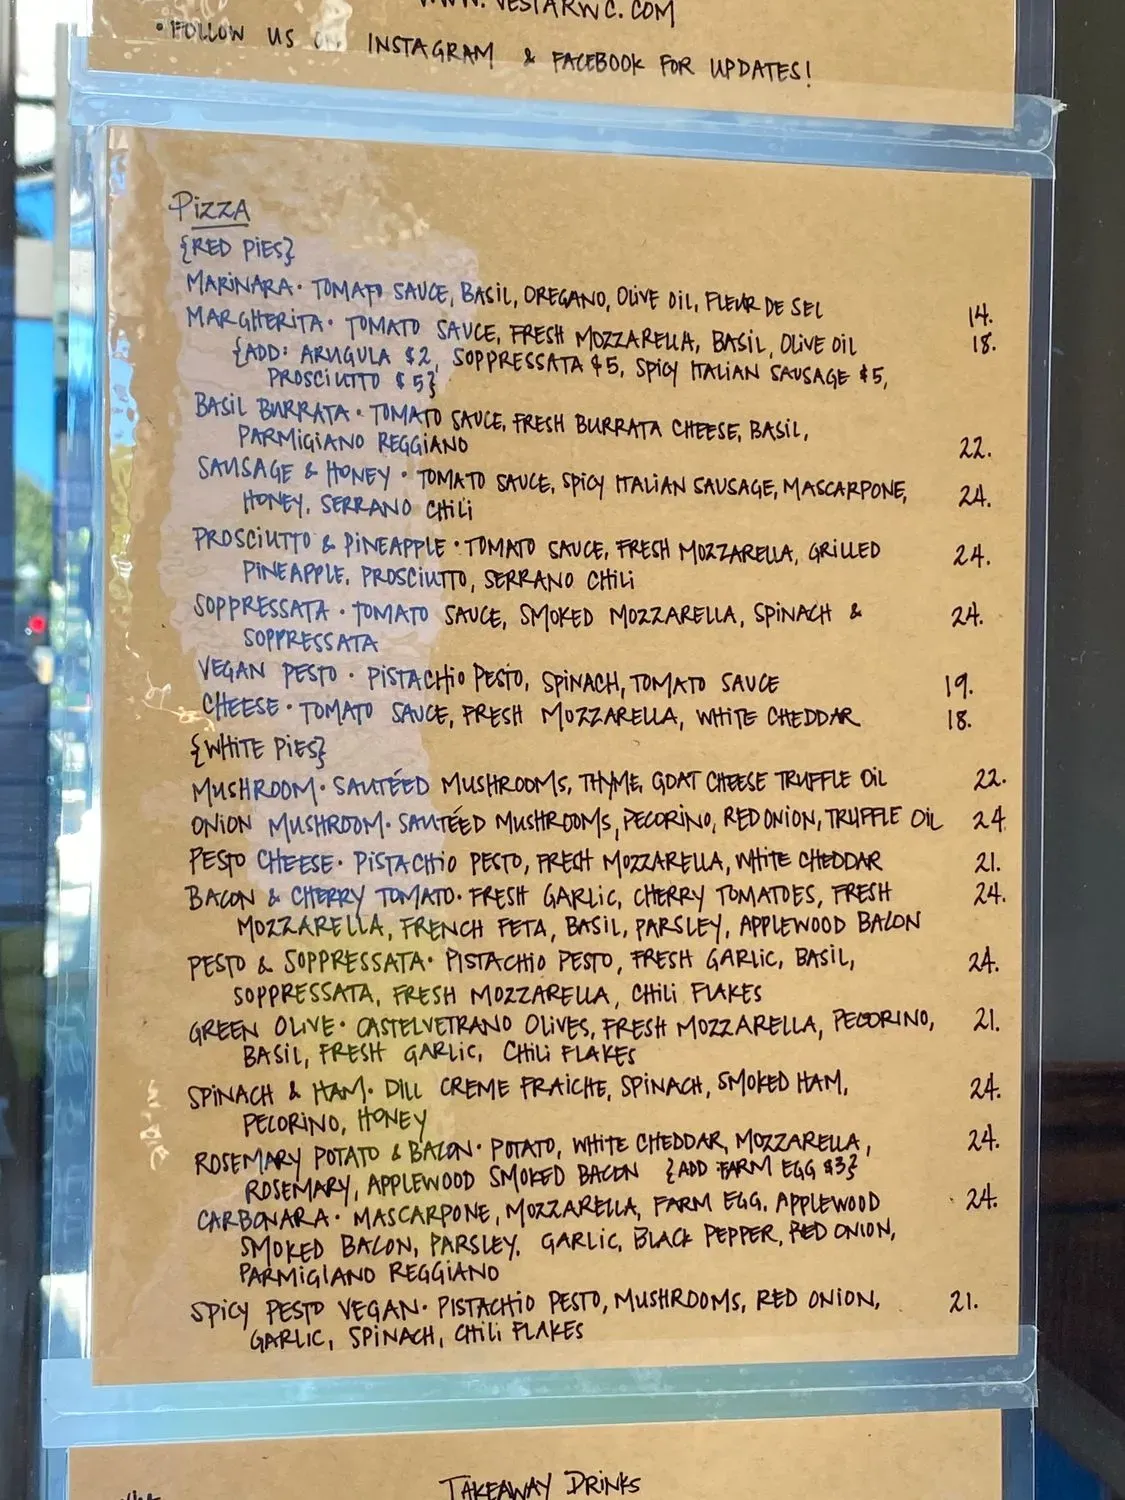 WWW.VESTARWC.COM
• FOLLOW US ON INSTAGRAM & FACEBOOK FOR UPDATES!
PIZZA
{RED PIES}
MARINARA • TOMATO SAUCE, BASIL, OREGANO, OLIVE OIL, FLEUR DE SEL 14.
MARGHERITA • TOMATO SAUCE, FRESH MOZZARELLA, BASIL, OLIVE OIL 18.
{ADD: ARUGULA $2, SOPPRESSATA $5, SPICY ITALIAN SAUSAGE $5,
PROSCIUTTO $5}
BASIL BURRATA • TOMATO SAUCE, FRESH BURRATA CHEESE, BASIL,
PARMIGIANO REGGIANO 22.
SAUSAGE & HONEY • TOMATO SAUCE, SPICY ITALIAN SAUSAGE, MASCARPONE, 24.
HONEY, SERRANO CHILI
PROSCIUTTO & PINEAPPLE • TOMATO SAUCE, FRESH MOZZARELLA, GRILLED 24.
PINEAPPLE, PROSCIUTTO, SERRANO CHILI
SOPPRESSATA • TOMATO SAUCE, SMOKED MOZZARELLA, SPINACH & 24.
SOPPRESSATA
VEGAN PESTO • PISTACHIO PESTO, SPINACH, TOMATO SAUCE 19.
CHEESE • TOMATO SAUCE, FRESH MOZZARELLA, WHITE CHEDDAR 18.
{WHITE PIES}
MUSHROOM • SAUTÉED MUSHROOMS, THYME, GOAT CHEESE TRUFFLE OIL 22.
ONION MUSHROOM • SAUTÉED MUSHROOMS, PECORINO, RED ONION, TRUFFLE OIL 24
PESTO CHEESE • PISTACHIO PESTO, FRESH MOZZARELLA, WHITE CHEDDAR 21.
BACON & CHERRY TOMATO • FRESH GARLIC, CHERRY TOMATOES, FRESH 24.
MOZZARELLA, FRENCH FETA, BASIL, PARSLEY, APPLEWOOD BACON
PESTO & SOPPRESSATA • PISTACHIO PESTO, FRESH GARLIC, BASIL, 24.
SOPPRESSATA, FRESH MOZZARELLA, CHILI FLAKES
GREEN OLIVE • CASTELVETRANO OLIVES, FRESH MOZZARELLA, PECORINO, 21.
BASIL, FRESH GARLIC, CHILI FLAKES
SPINACH & HAM • DILL CREME FRAICHE, SPINACH, SMOKED HAM, 24.
PECORINO, HONEY
ROSEMARY POTATO & BACON • POTATO, WHITE CHEDDAR, MOZZARELLA, 24.
ROSEMARY, APPLEWOOD SMOKED BACON {ADD FARM EGG $3}
CARBONARA • MASCARPONE, MOZZARELLA, FARM EGG, APPLEWOOD 24.
SMOKED BACON, PARSLEY, GARLIC, BLACK PEPPER, RED ONION,
PARMIGIANO REGGIANO
SPICY PESTO VEGAN • PISTACHIO PESTO, MUSHROOMS, RED ONION, 21.
GARLIC, SPINACH, CHILI FLAKES
TAKEAWAY DRINKS